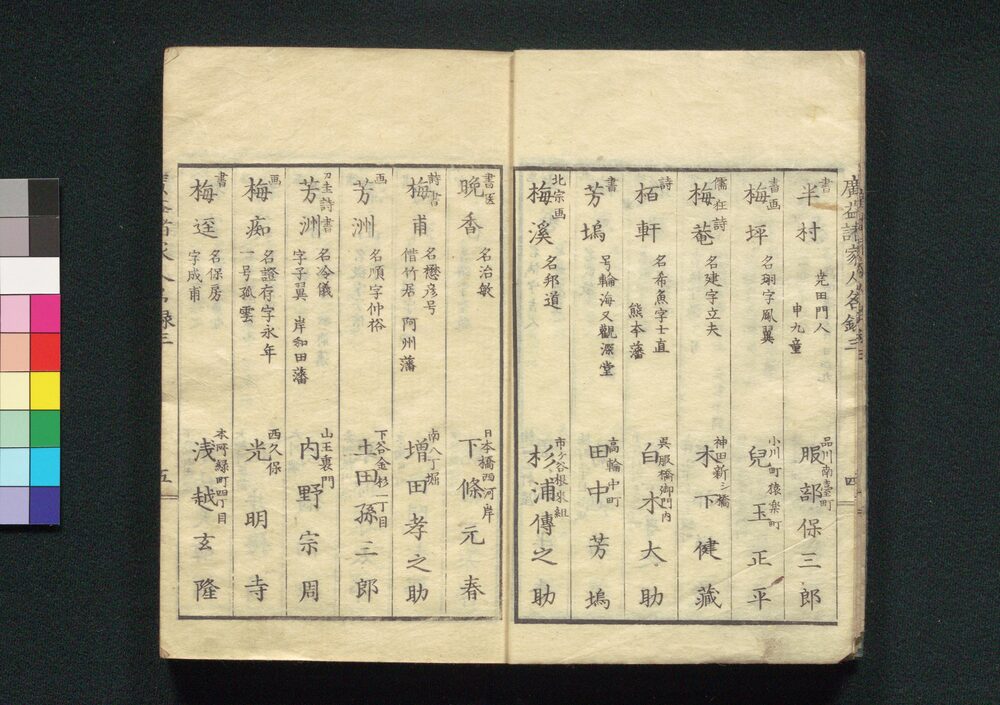 廣益諸家人名録三
四
書 半村 克田門人 申九童 品川南臺町 服部保三郎
書画 梅坪 名琱字鳳翼 小川町猿楽町 兒玉正平
儒狂詩 梅菴 名建字立夫 神田新シ橋 木下健藏
詩 栢軒 名希魚字士直 熊本藩 呉服橋御門内 白木大助
書 芳塢 号輪海又觀瀾堂 高輪中町 田中芳塢
北宗画 梅溪 名邦道 市ヶ谷根来組 杉浦傳之助
書医 晩香 名治敏 日本橋西河岸 下條元春
詩書 梅甫 名懋彦号 借竹居 阿州藩 南八丁堀 増田孝之助
画 芳洲 名順字仲裕 下谷金杉一丁目 土田孫三郎
刀圭詩書 芳洲 名冷儀 字子翼 岸和田藩 山王裏門 内野宗周
画 梅痴 名證存字永年 一号孤雲 西久保 光明寺
書 梅逕 名保房 字成甫 本所緑町四丁目 浅越玄隆
五